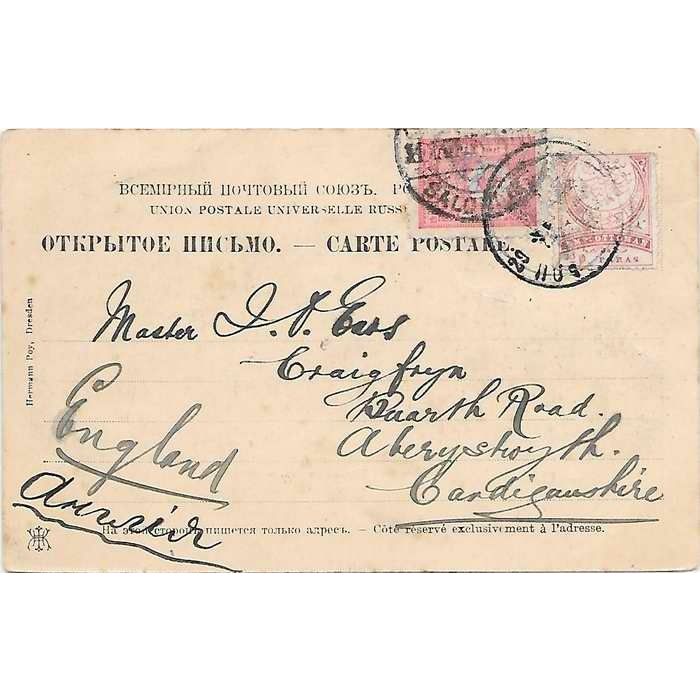 ВСЕМІРНЫЙ ПОЧТОВЫЙ СОЮЗЪ.
UNION POSTALE UNIVERSELLE RUSS
ОТКРЫТОЕ ПИСЬМО. — CARTE POSTALE.
PARAS
Hermann Poy, Dresden
Master I. O. Evans
Craigfryn
Buarth Road.
Aberystwyth.
Cardiganshire
England
Англія
На этой сторонѣ пишется только адресъ. — Côté réservé exclusivement à l'adresse.